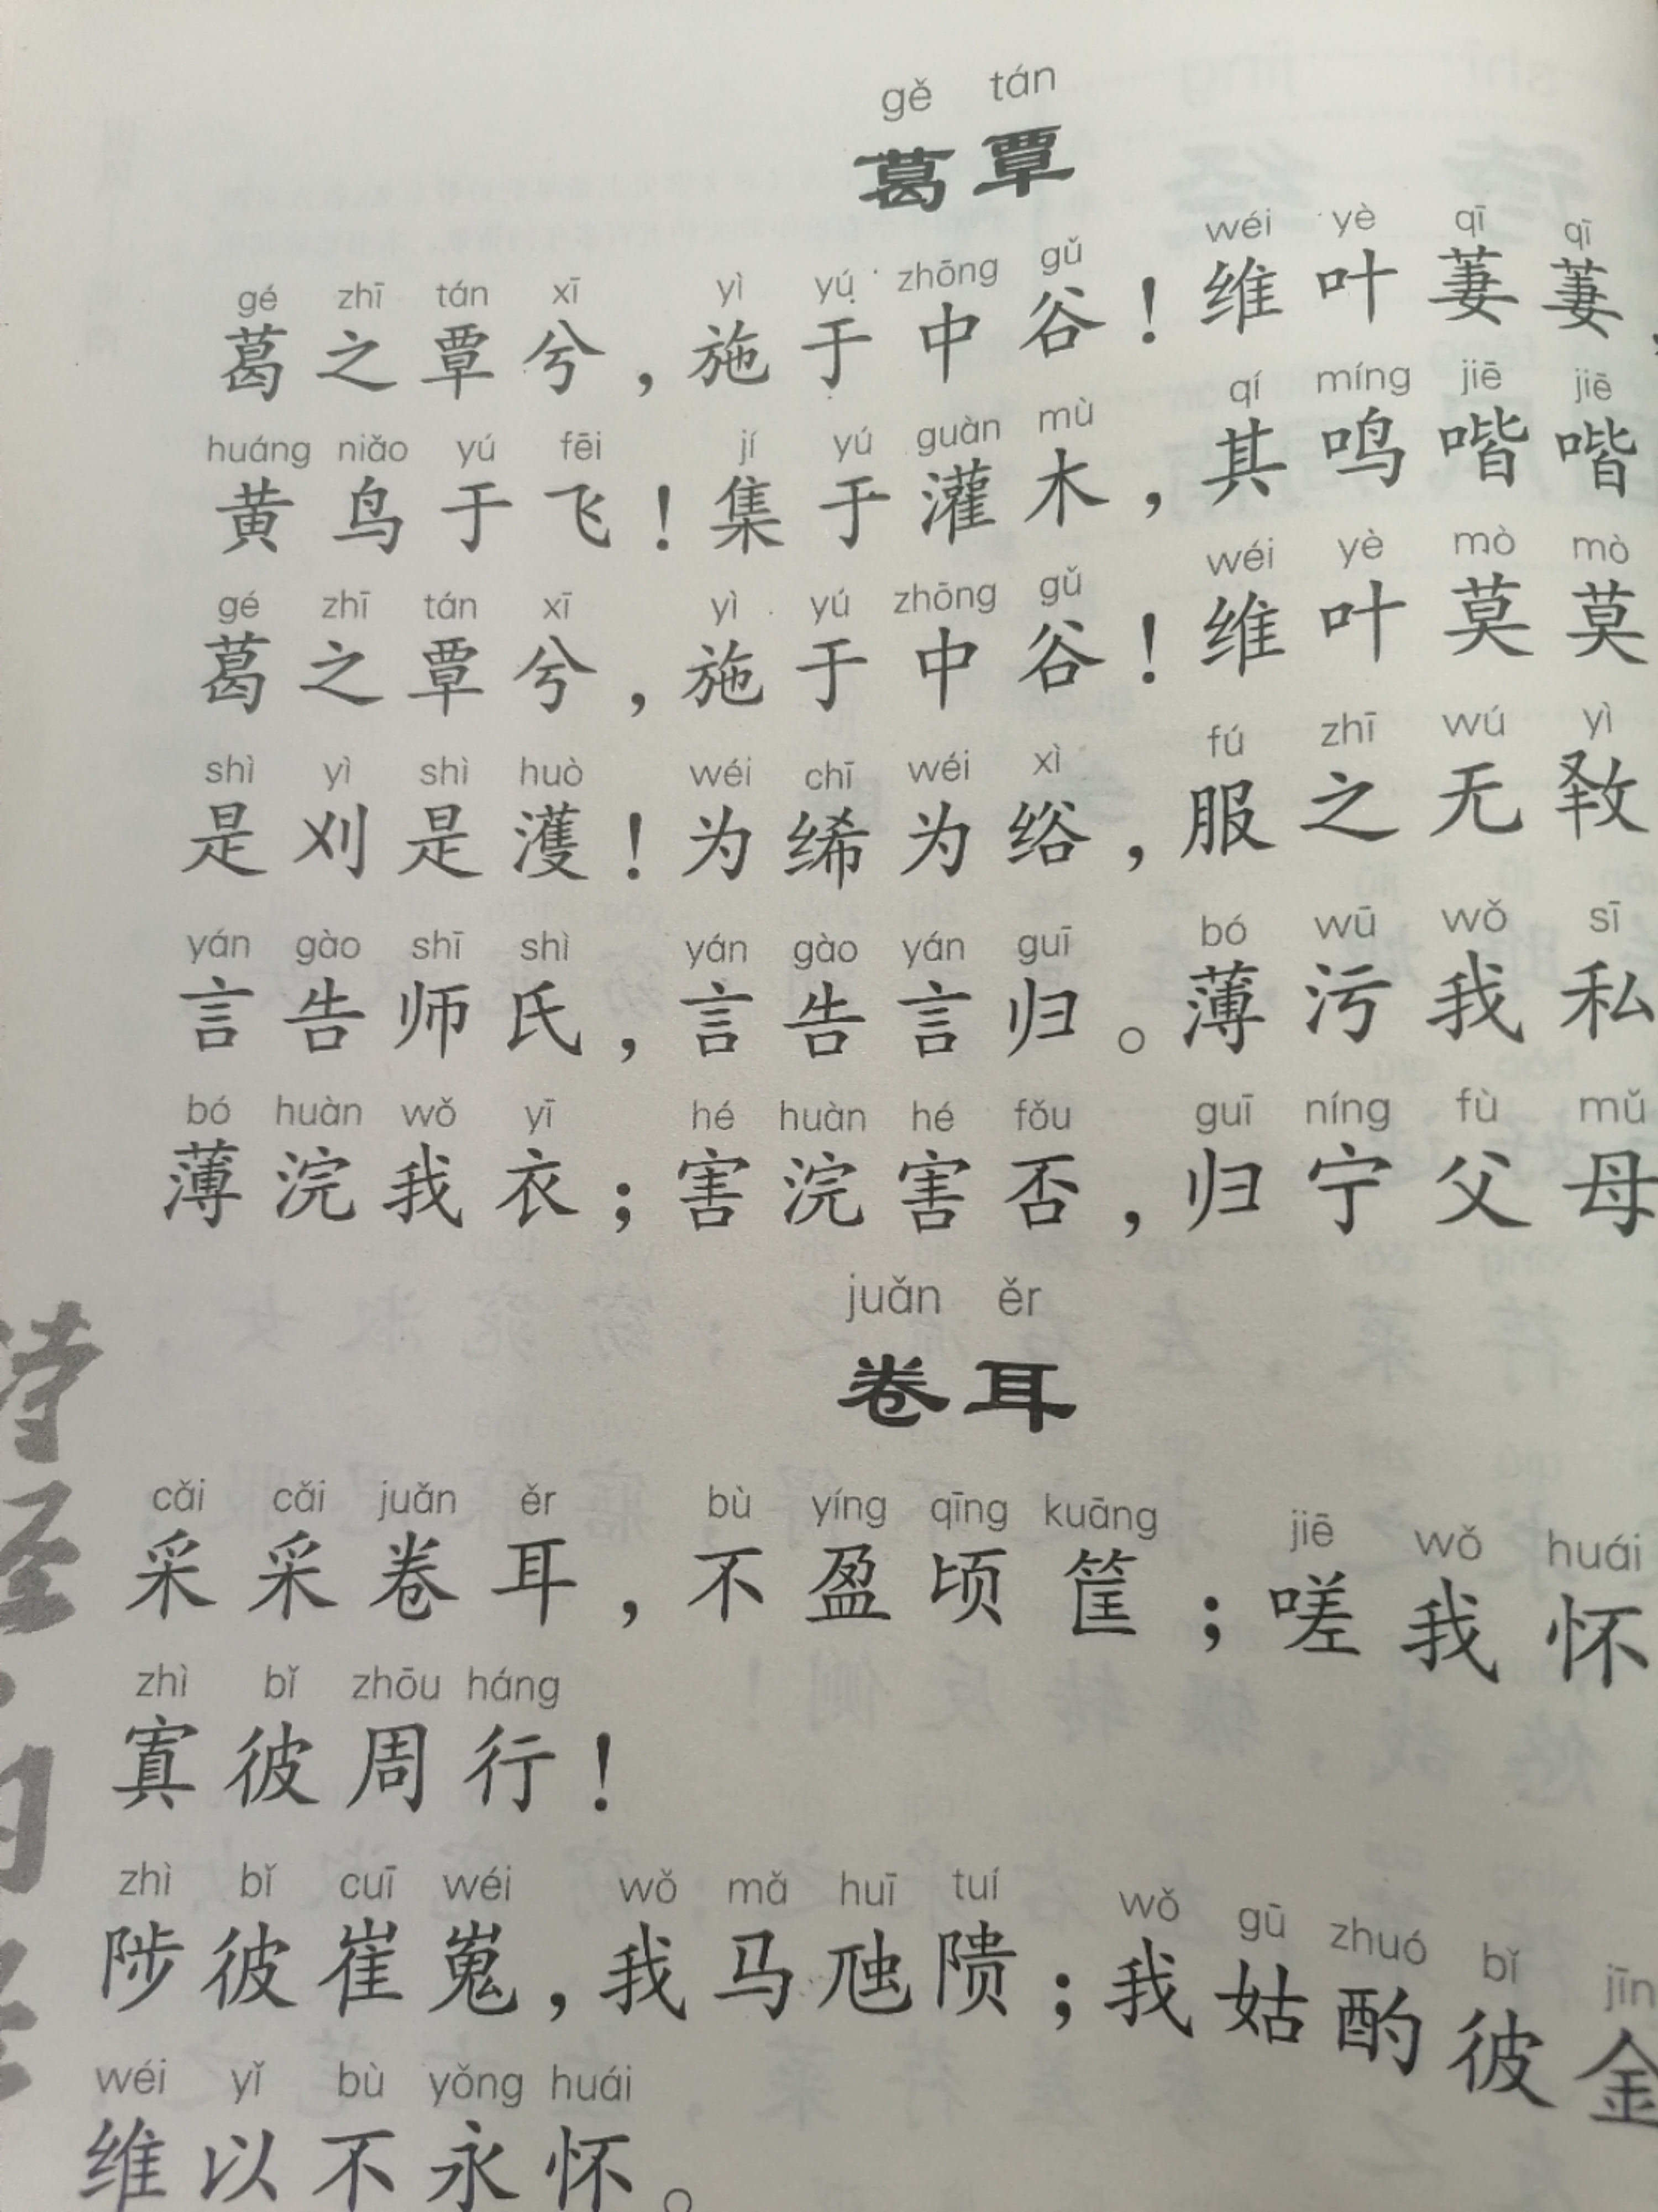 gě tán
葛覃
gé zhī tán xī yì yú zhōng gǔ wéi yè qī qī
葛之覃兮，施于中谷！维叶萋萋，
huáng niǎo yú fēi jí yú guàn mù qí míng jiē jiē
黄鸟于飞！集于灌木，其鸣喈喈
gé zhī tán xī yì yú zhōng gǔ wéi yè mò mò
葛之覃兮，施于中谷！维叶莫莫
shì yì shì huò wéi chī wéi xì fú zhī wú yì
是刈是濩！为𫄨为绤，服之无斁
yán gào shī shì yán gào yán guī bó wū wǒ sī
言告师氏，言告言归。薄污我私
bó huàn wǒ yī hé huàn hé fǒu guī níng fù mǔ
薄浣我衣；害浣害否，归宁父母
juǎn ěr
卷耳
cǎi cǎi juǎn ěr bù yíng qīng kuāng jiē wǒ huái
采采卷耳，不盈顷筐；嗟我怀
zhì bǐ zhōu háng
寘彼周行！
zhì bǐ cuī wéi wǒ mǎ huī tuí wǒ gū zhuó bǐ jīn
陟彼崔嵬，我马虺𬯎；我姑酌彼金
wéi yǐ bù yǒng huái
维以不永怀。
诗经